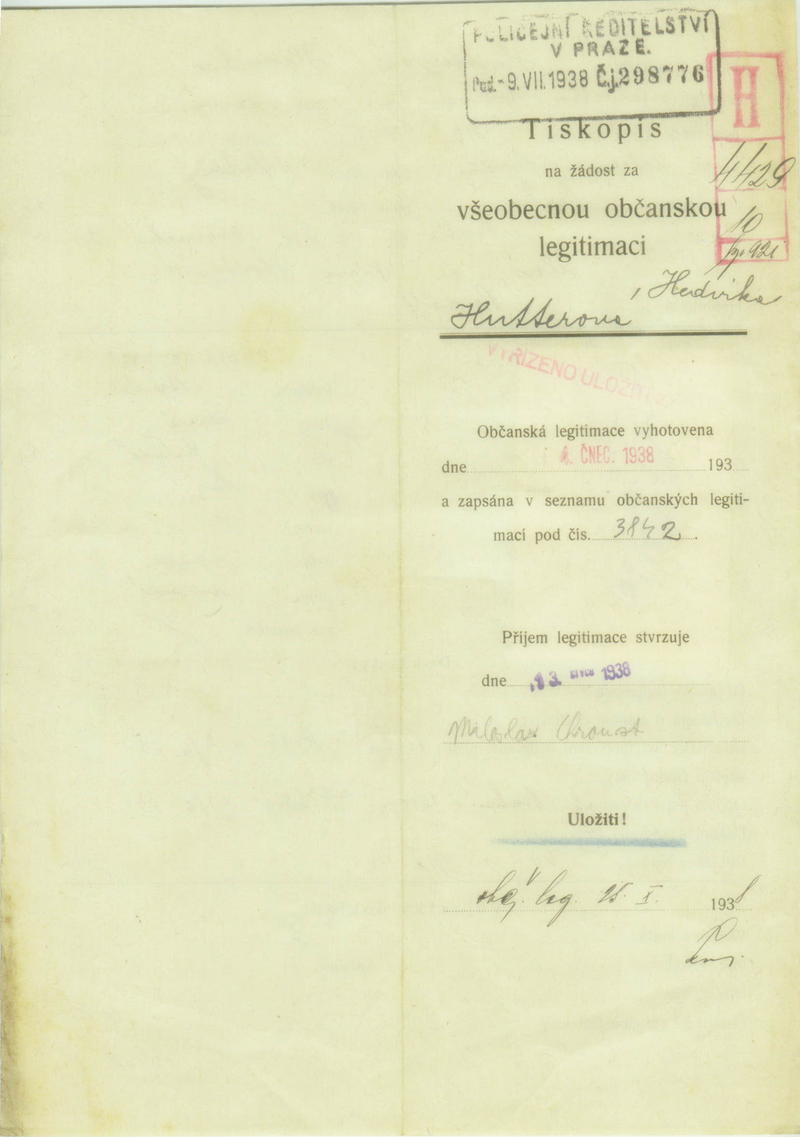 POLICEJNÍ ŘEDITELSTVÍ
V PRAZE.
Pod. -9.VII.1938 Č.j.298776
H
Tiskopis
na žádost za
4429
všeobecnou občanskou
10
legitimaci
921
Hutterova, Hedvika
VYŘÍZENO ULOŽITI
Občanská legitimace vyhotovena
dne ČNEC. 1938 193
a zapsána v seznamu občanských legiti-
mací pod čís. 3842.
Příjem legitimace stvrzuje
dne 13. 1938
Miloslav Chroust
Uložiti!
obč. leg. X. 1938